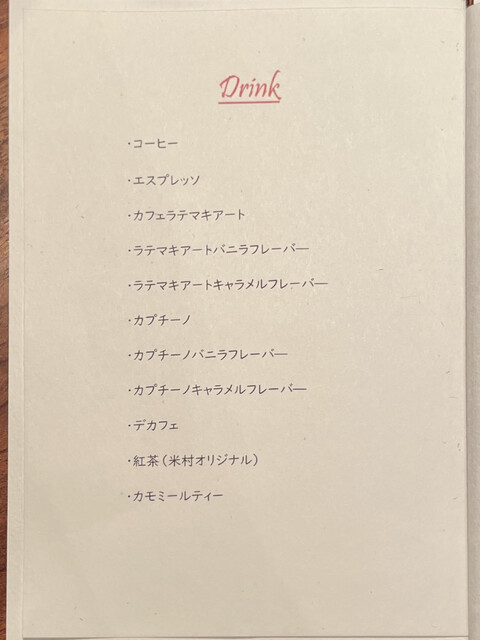 Drink
・コーヒー
・エスプレッソ
・カフェラテマキアート
・ラテマキアートバニラフレーバー
・ラテマキアートキャラメルフレーバー
・カプチーノ
・カプチーノバニラフレーバー
・カプチーノキャラメルフレーバー
・デカフェ
・紅茶(米村オリジナル)
・カモミールティー